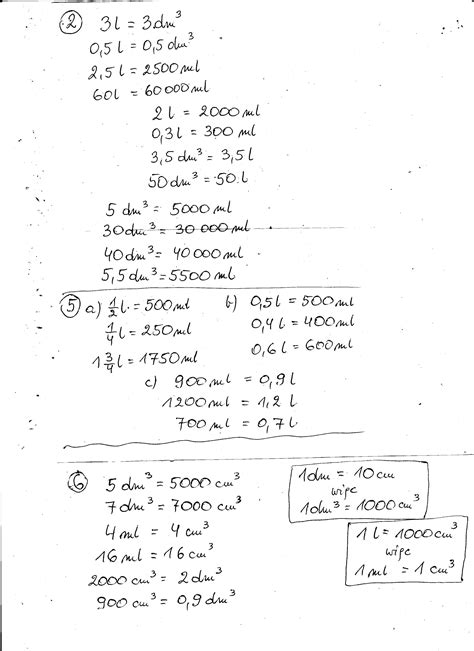 2 3l = 3dm³
0,5l = 0,5dm³
2,5l = 2500ml
60l = 60000ml
2l = 2000ml
0,3l = 300ml
3,5dm³ = 3,5l
50dm³ = 50l
5dm³ = 5000ml
30dm³ = 30 000ml
40dm³ = 40 000ml
5,5dm³ = 5500ml
5 a) ½l = 500ml b) 0,5l = 500ml
¼l = 250ml 0,4l = 400ml
1¾l = 1750ml 0,6l = 600ml
c) 900ml = 0,9l
1200ml = 1,2l
700ml = 0,7l
6 5dm³ = 5000cm³
7dm³ = 7000cm³
4ml = 4cm³
16ml = 16cm³
2000cm³ = 2dm³
900cm³ = 0,9dm³
1dm = 10cm
więc
1dm³ = 1000cm³
1l = 1000cm³
więc
1ml = 1cm³